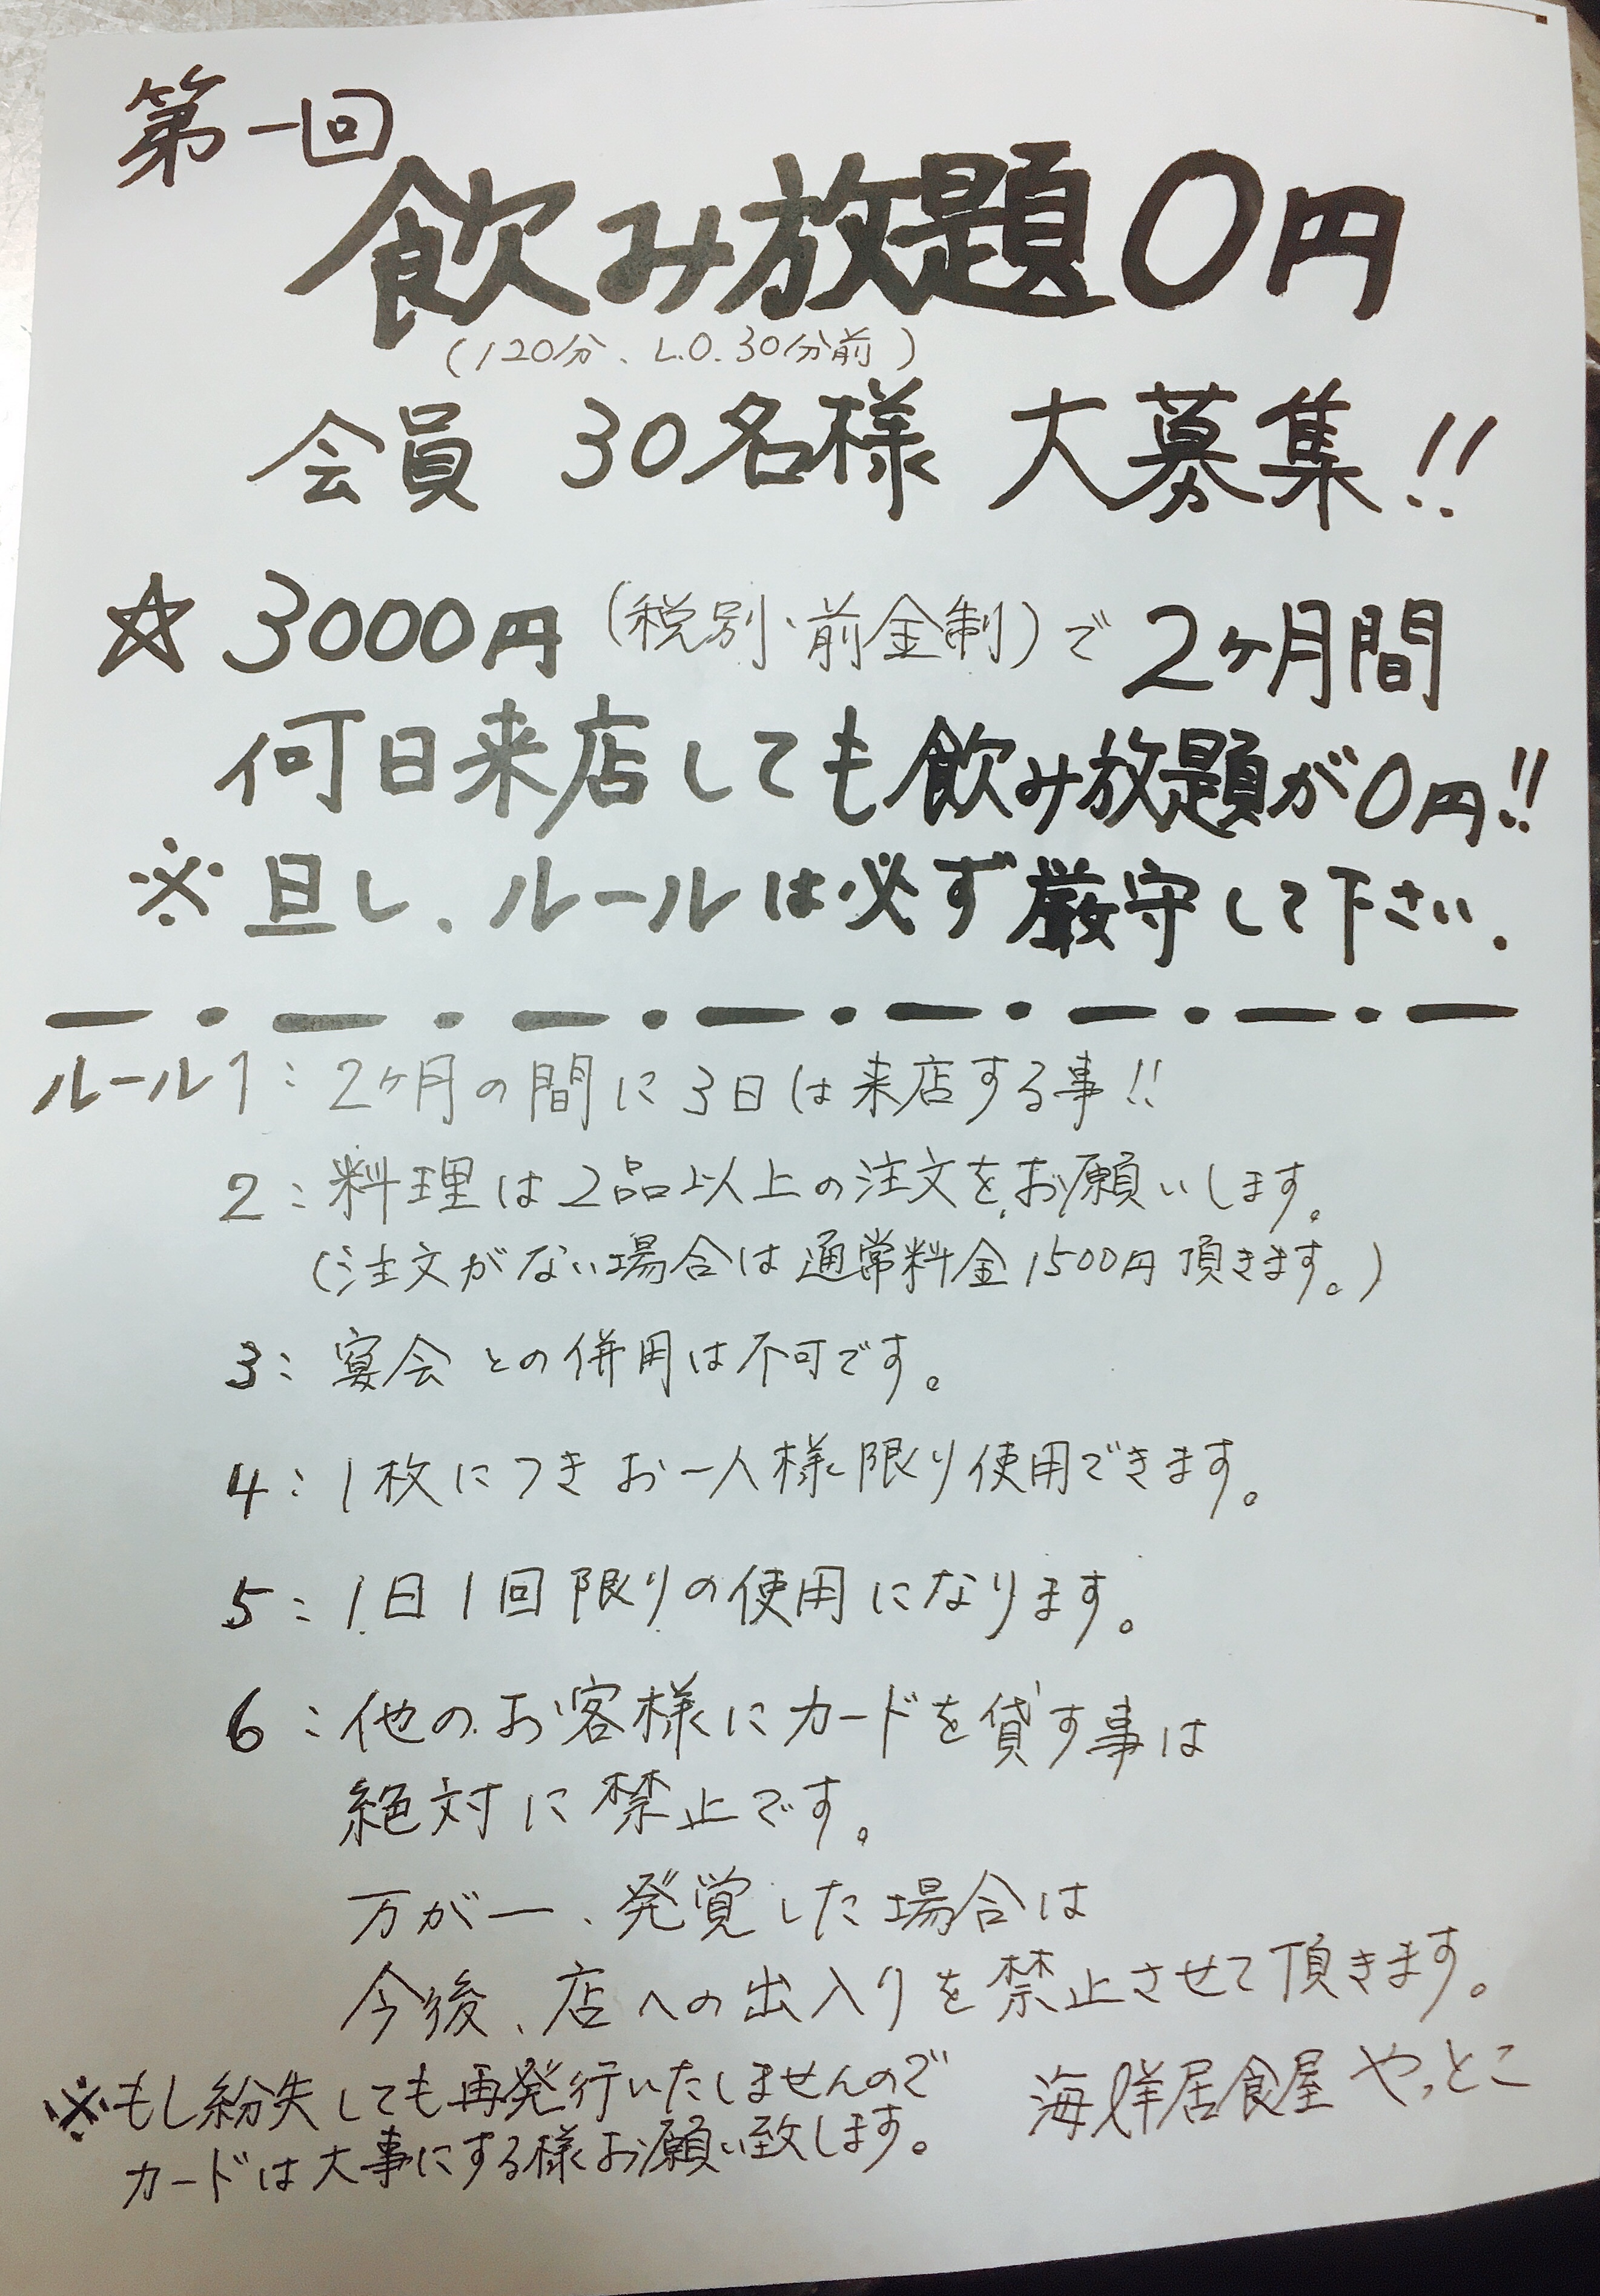 第一回
飲み放題0円
(120分、L.O.30分前)
会員 30名様 大募集!!
☆ 3000円(税別・前金制)で2ヶ月間
何日来店しても飲み放題が0円!!
※旦し、ルールは必ず厳守して下さい.
ルール1:2ヶ月の間に3日は来店する事!!
2:料理は2品以上の注文をお願いします。
(注文がない場合は通常料金1500円頂きます。)
3:宴会との併用は不可です。
4:1枚につきお一人様限り使用できます。
5:1日1回限りの使用になります。
6:他のお客様にカードを貸す事は
絶対に禁止です。
万が一、発覚した場合は
今後、店への出入りを禁止させて頂きます。
※もし紛失しても再発行いたしませんので
カードは大事にする様お願い致します。
海鮮居食屋 やっとこ